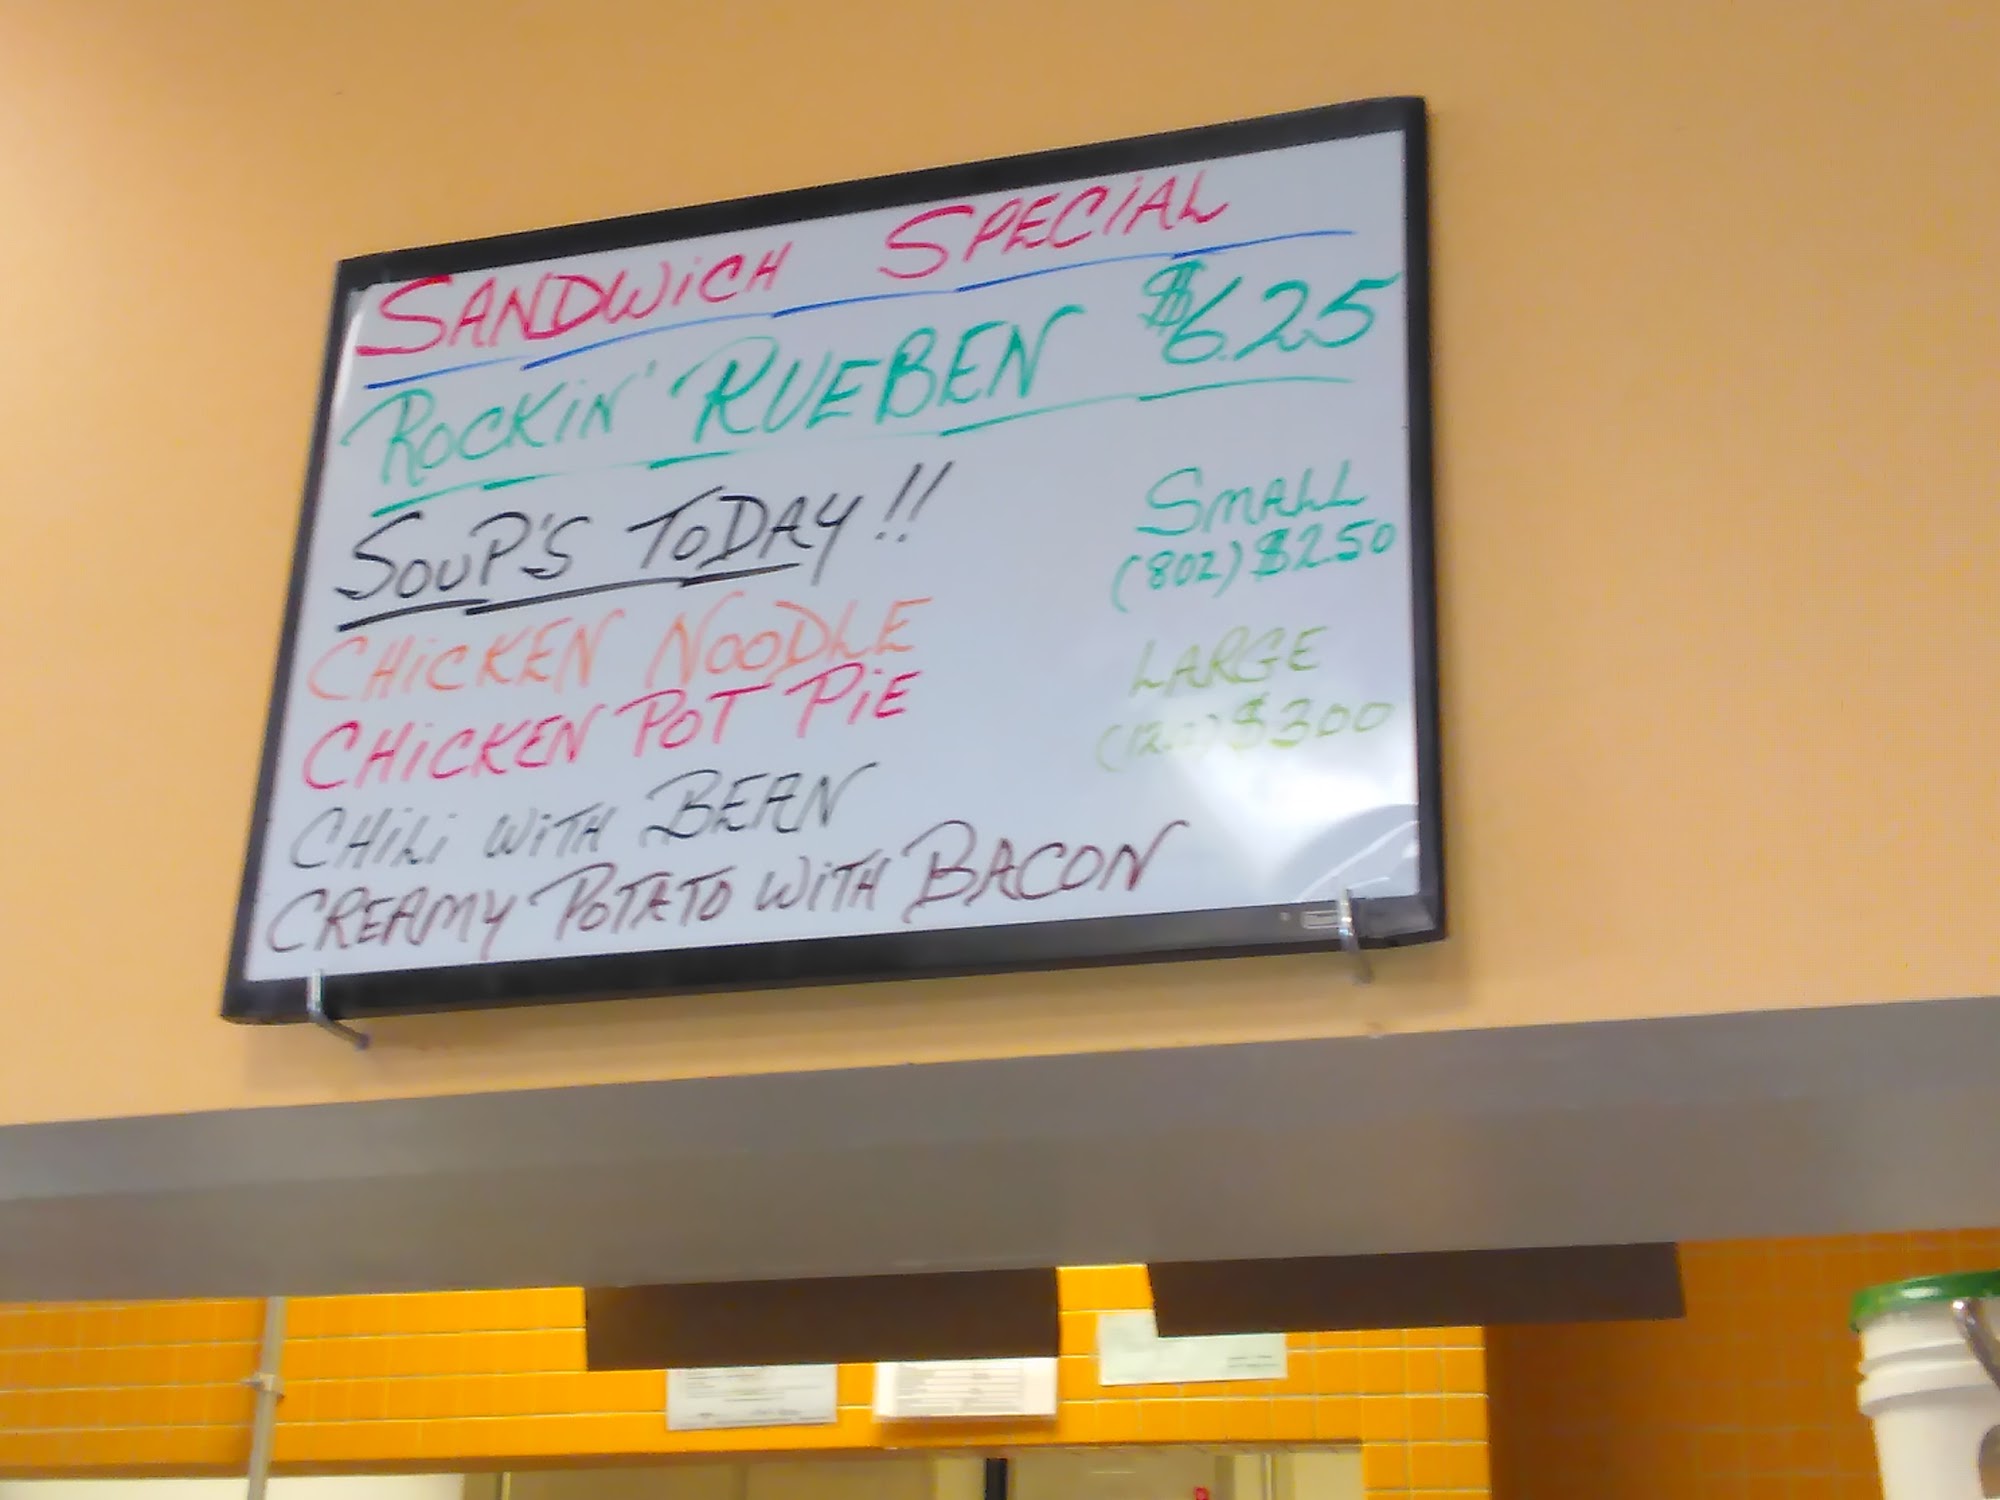 SANDWiCH SPECiAL
ROCKiN' RUEBEN $6.25
SOUP'S TODAY!!
SMALL
(8OZ) $2.50
CHiCKEN NOODLE
LARGE
CHiCKEN POT PiE
$3.00
CHiLi WiTH BEAN
CREAMY POTATO WiTH BACON